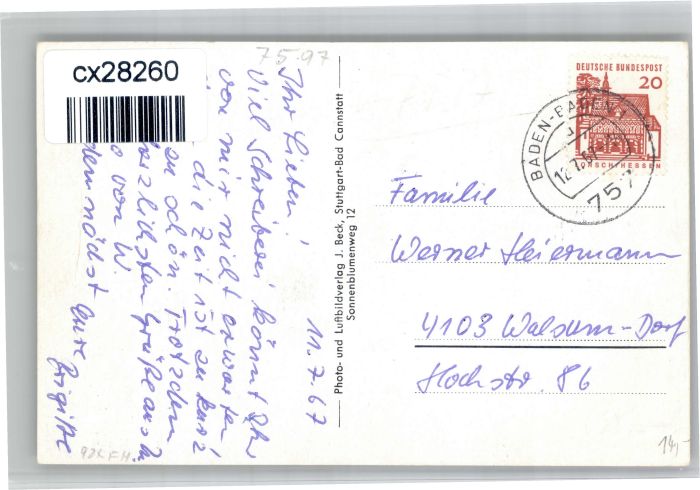 cx28260
75-97
11.7.67
Ihr Lieben!
Viel Schreiberei könnt Ihr
von mir nicht erwarten,
die Zeit ist zu kurz
schön. Trotzdem
herzlichsten Grüße auch
von W.
demnächst Eure
Brigitte
Photo- und Luftbildverlag J. Beck, Stuttgart-Bad Cannstatt
Sonnenblumenweg 12
DEUTSCHE BUNDESPOST
20
LORSCH/HESSEN
BADEN-BADEN
757
Familie
Werner Heiermann
4103 Walsum-Dorf
Hochstr. 86
14,-